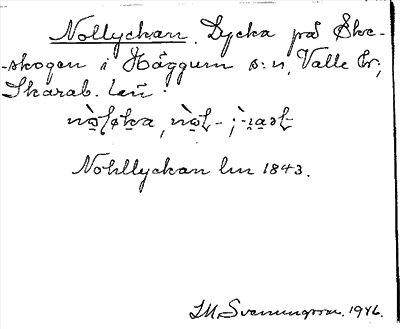 Nollyckan. Lycka på Ske-
-skogen i Häggum s:n, Valle hr;
Skarab. län.
Nohllyckan lm 1843.
I.M. Svenungsson. 1946.